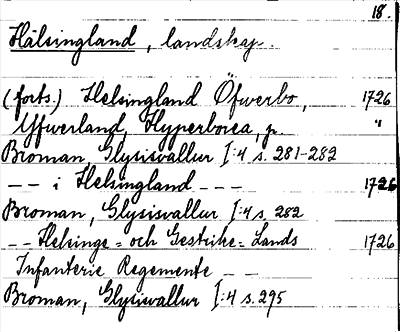 18.
Hälsingland, landskap.
(forts.) Helsingland Öfwerbo, 1726
Yfwerland, Hyperborea, p. "
Broman, Glysisvallur I:4 s. 281-282
- - i Helsingland - - - 1726
Broman, Glysisvallur I:4 s. 282
- - Helsinge= och Gestrike= Lands 1726
Infanterie Regemente - -
Broman, Glysisvallur I:4 s. 295